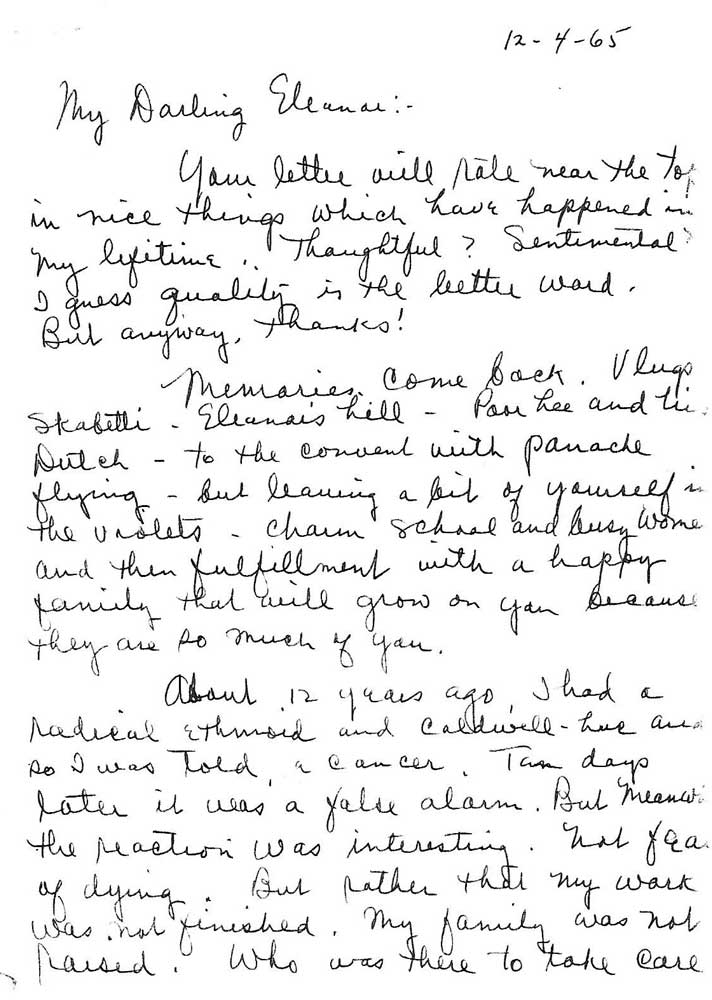 12-4-65
My Darling Eleanor:-
Your letter will rate near the top
in nice things which have happened in
my lifetime.. Thoughtful? Sentimental?
I guess quality is the better word.
But anyway, thanks!
Memories come back. Vlugs
Skabetti - Eleanor's hill - Poor Lee and
Dutch - to the convent with panache
flying - but leaving a bit of yourself in
the violets - charm school and busy wome
and then fulfillment with a happy
family that will grow on you because
they are so much of you.
About 12 years ago, I had a
radical ethmoid and Caldwell-Luc and
so I was told, a cancer. Ten days
later it was a false alarm. But meanwi
the reaction was interesting. Not fea
of dying. But rather that my work
was not finished. My family was not
raised. Who was there to take care